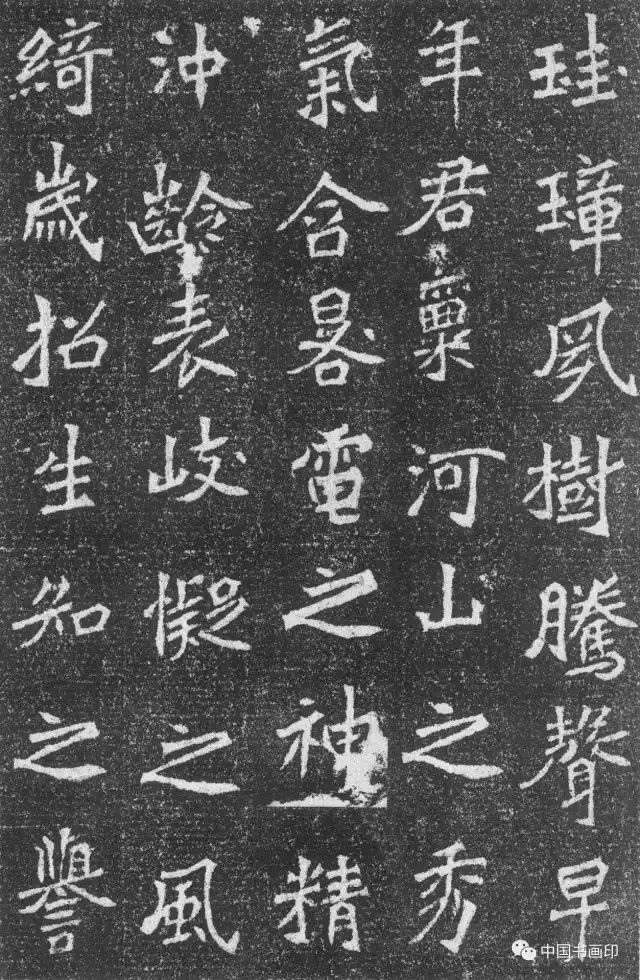 珪璋夙樹騰聲早
年君稟河山之秀
氣含晷電之神精
沖齡表岐嶷之風
綺歲招生知之譽
中国书画印